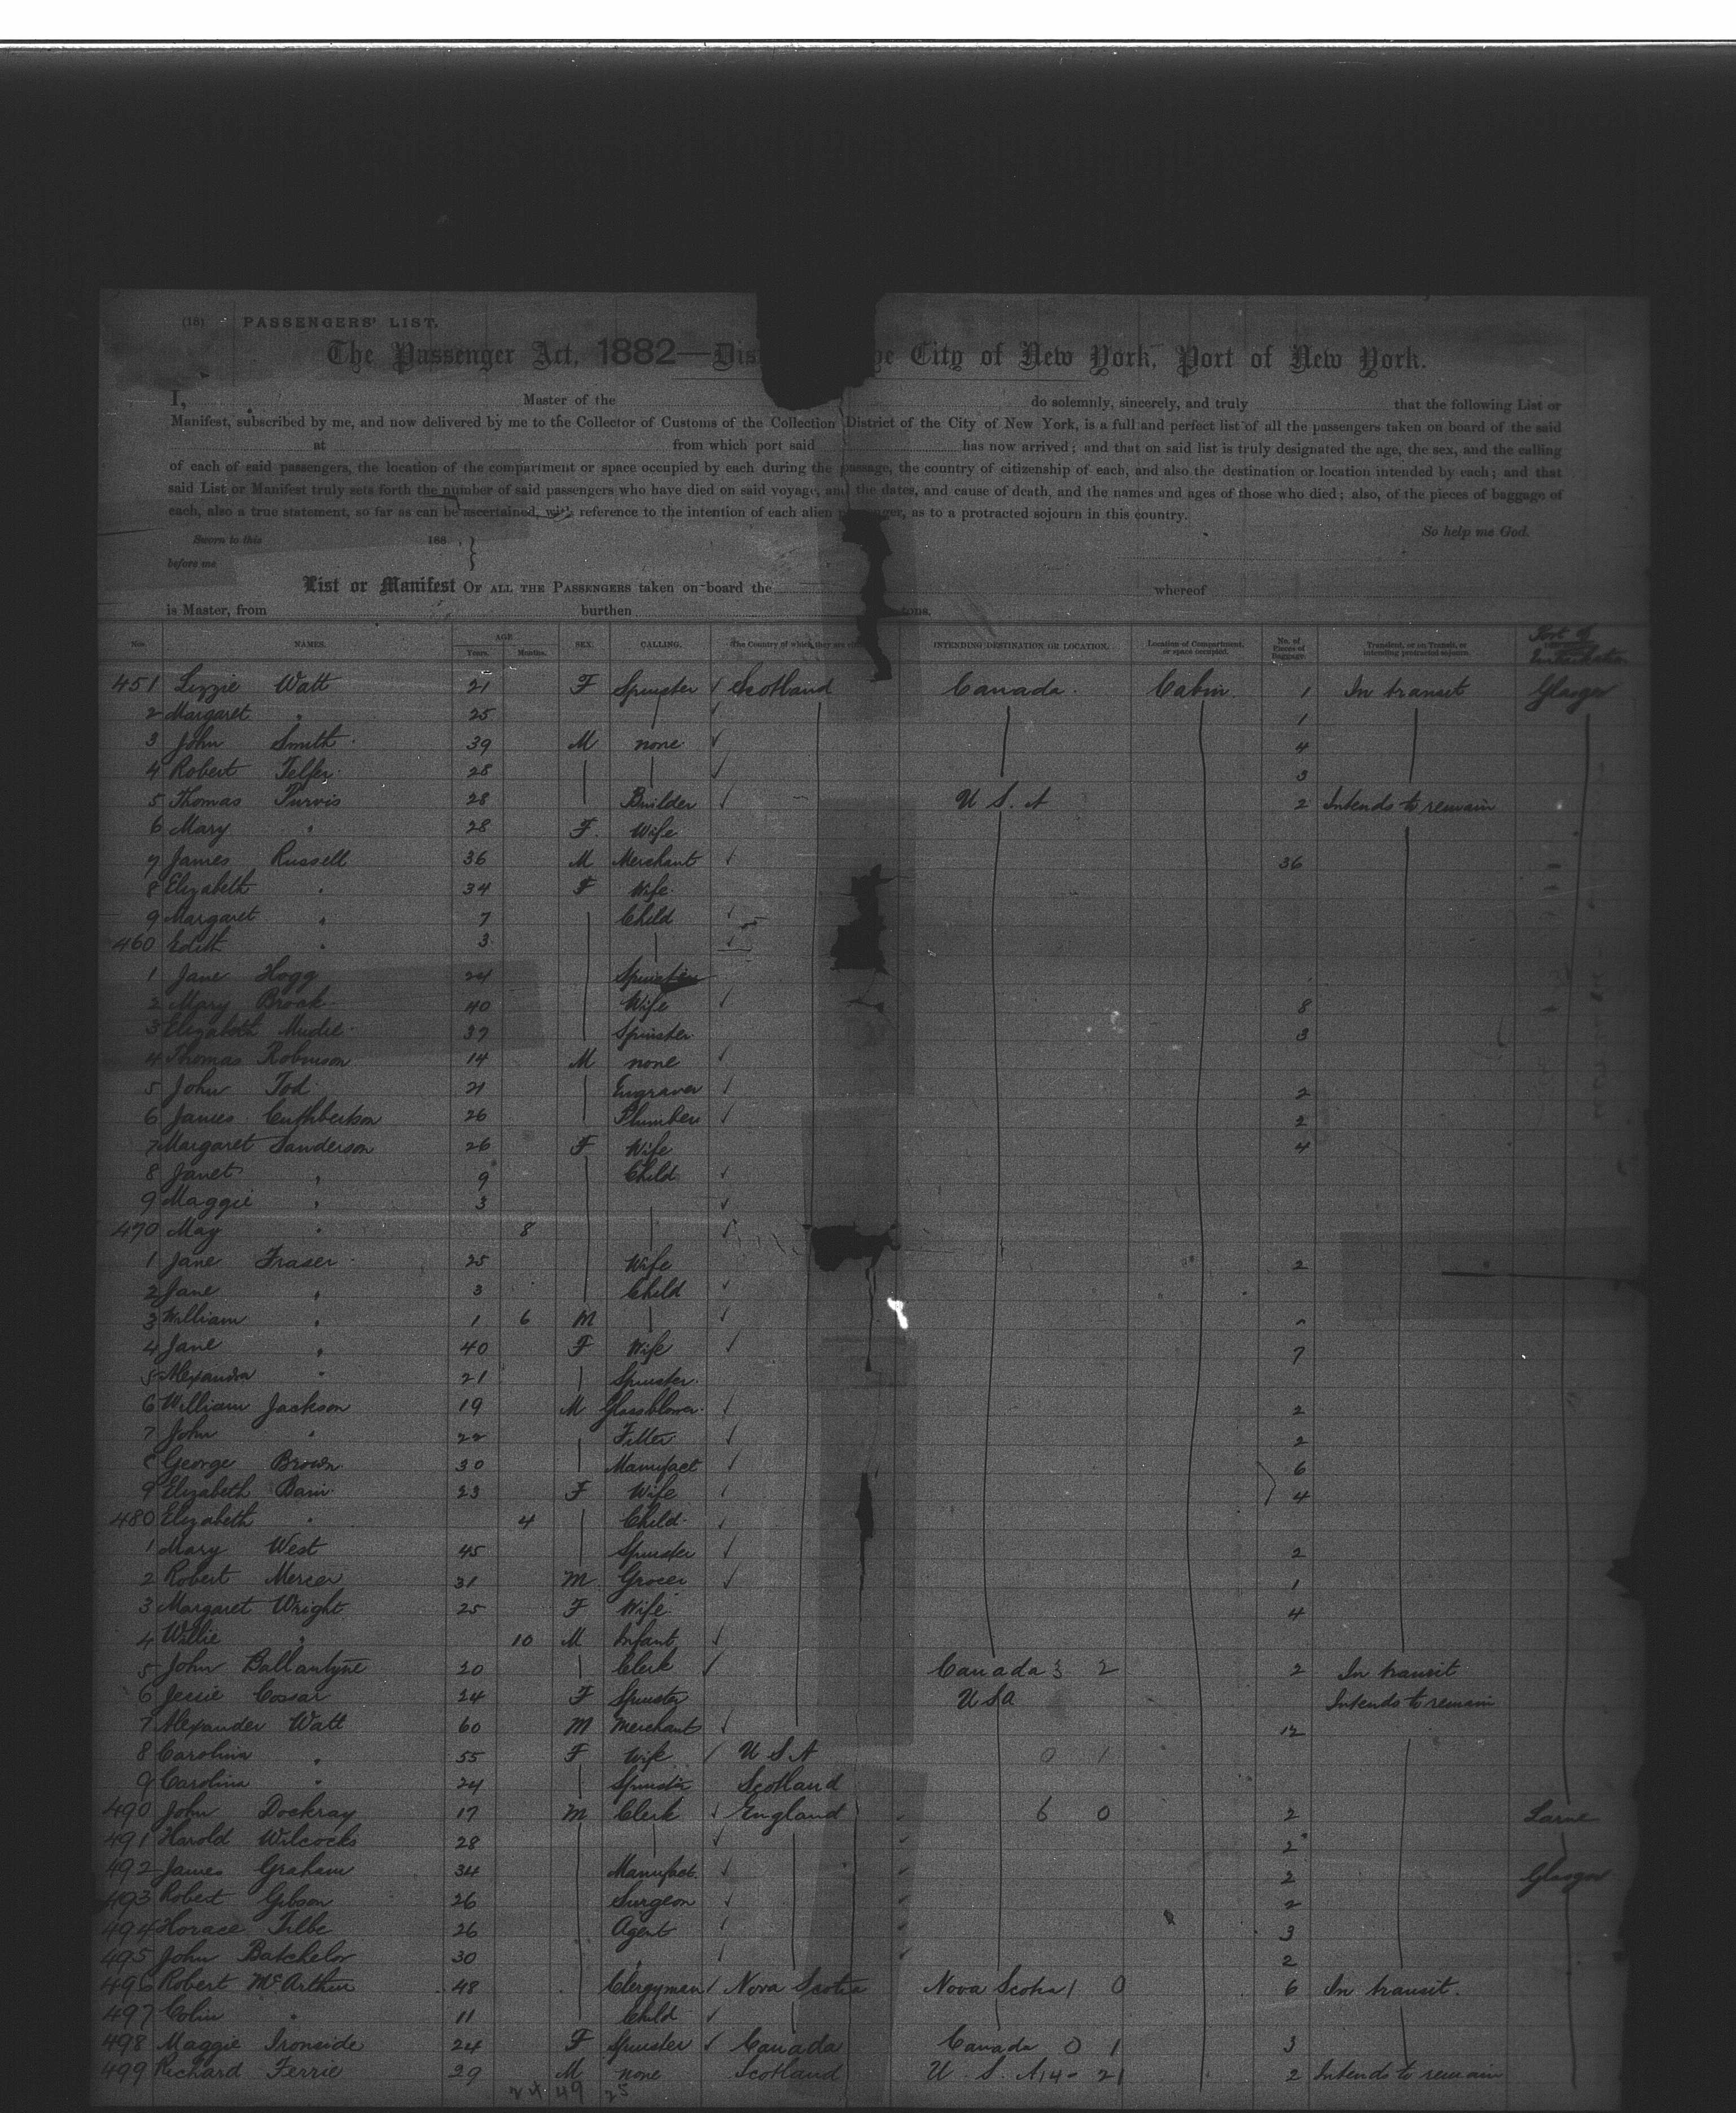 (16) PASSENGERS' LIST.
The Passenger Act, 1882—Dis he City of New York, Port of New York.
I, Master of the do solemnly, sincerely, and truly that the following List or
Manifest, subscribed by me, and now delivered by me to the Collector of Customs of the Collection District of the City of New York, is a full and perfect list of all the passengers taken on board of the said
at from which port said has now arrived; and that on said list is truly designated the age, the sex, and the calling
of each of said passengers, the location of the compartment or space occupied by each during the passage, the country of citizenship of each, and also the destination or location intended by each; and that
said List or Manifest truly sets forth the number of said passengers who have died on said voyage, and the dates, and cause of death, and the names and ages of those who died; also, of the pieces of baggage of
each, also a true statement, so far as can be ascertained, with reference to the intention of each alien nger, as to a protracted sojourn in this country.
So help me God.
Sworn to this 188 }
before me
List or Manifest OF ALL THE PASSENGERS taken on board the whereof
is Master, from burthen tons.
Nos. NAMES. AGE Years. Months. SEX. CALLING. The Country of which they are INTENDING DESTINATION OR LOCATION. Location of Compartment, or space occupied. No. of Pieces of Baggage. Transient, or on Transit, or intending protracted sojourn. Port of
451 Lizzie Watt 21 F Spinster Scotland Canada. Cabin 1 In transit Glasgow
2 Margaret " 25 1
3 John Smith 39 M none 4
4 Robert Telfer 28 3
5 Thomas Purvis 28 Builder U S. A 2 Intends to remain
6 Mary " 28 F. Wife
7 James Russell 36 M Merchant 36
8 Elizabeth " 34 F Wife
9 Margaret " 7 Child
460 Edith " 3
1 Jane Hogg 24 Spinster
2 Mary Brock 40 Wife 8
3 Elizabeth Mudie 37 Spinster 3
4 Thomas Robinson 14 M none
5 John Tod 21 Engraver 2
6 James Cuthbertson 26 Plumber 2
7 Margaret Sanderson 26 F Wife 4
8 Janet " 9 Child
9 Maggie " 3
470 May " 8
1 Jane Fraser 25 Wife 2
2 Jane " 3 Child
3 William " 1 6 M
4 Jane " 40 F Wife 7
5 Alexandra " 21 Spinster
6 William Jackson 19 M Glassblower 2
7 John " 22 Fitter 2
8 George Brown 30 Manufact 6
9 Elizabeth Bain 23 F Wife 4
480 Elizabeth " 4 Child
1 Mary West 45 Spinster 2
2 Robert Mercer 31 M Grocer 1
3 Margaret Wright 25 F Wife 4
4 Willie " 10 M Infant
5 John Ballantyne 20 Clerk Canada 3 2 2 In transit
6 Jessie Cossar 24 F Spinster U S A Intends to remain
7 Alexander Watt 60 M Merchant 12
8 Carolina " 55 F Wife U S A 0 1
9 Carolina " 24 Spinster Scotland
490 John Dockray 17 M Clerk England 6 0 2 Larne
491 Harold Wilcocks 28 2
492 James Graham 34 Manufact. 2 Glasgow
493 Robert Gibson 26 Surgeon 2
494 Horace Tilbe 26 Agent 3
495 John Batchelor 30 " 2
496 Robert McArthur 48 Clergyman Nova Scotia Nova Scotia 1 0 6 In transit.
497 Colin " 11 Child
498 Maggie Ironside 24 F Spinster Canada Canada 0 1 3
499 Richard Ferrie 29 M none Scotland U. S. A 14 - 21 2 Intends to remain
24 49 25